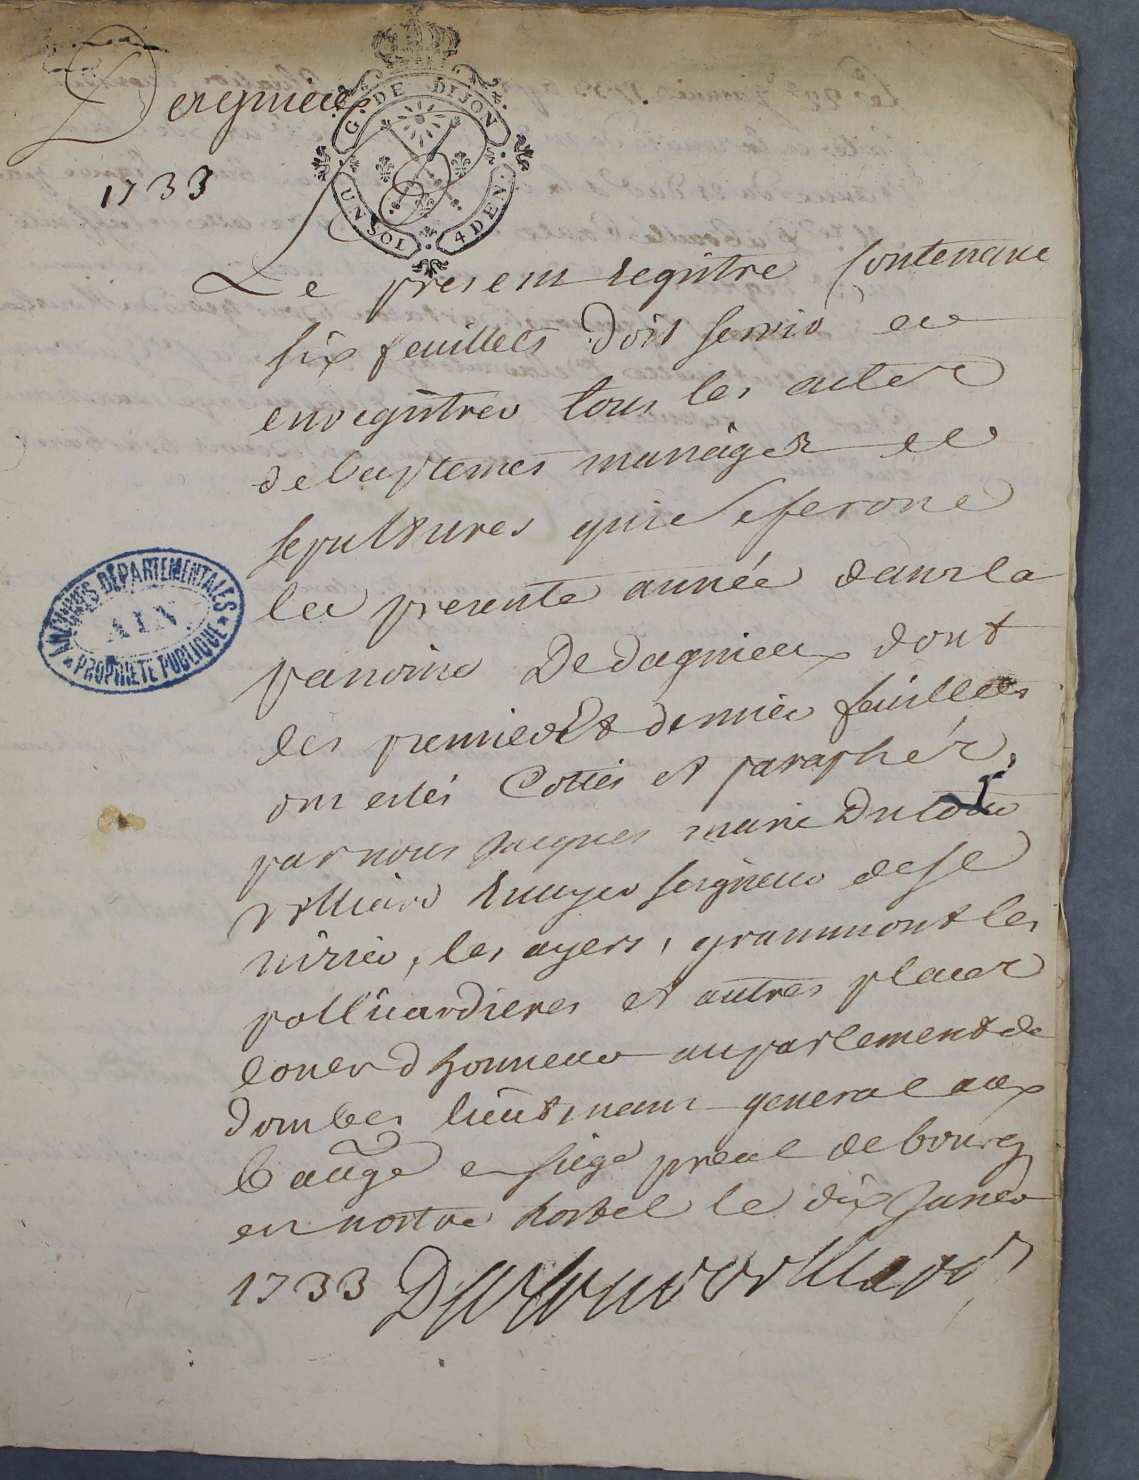 Dagnieu
1733
G. DE DIJON
UN SOL 4 DEN.
Le present registre contenant
six feuillets doit servir a
enregistrer tous les actes
de baptemes mariages et
sepultures qui se feront
la presente année dans la
paroisse De dagnieux dont
les premier Et dernier feuillets
ont estés Cottés et paraphés
par nous Jacques marie Dutour
Vulliard Ecuyer seigneur de st
nizier, les ayers, grammont les
polliardieres et autres places
coner d'honneur au parlement de
dombes lieutenant general aux
bailliage et siege preal de bourg
en nostre hostel le dix Janer
1733 Dutour Vulliard
ARCHIVES DÉPARTEMENTALES
AIN
PROPRIÉTÉ PUBLIQUE